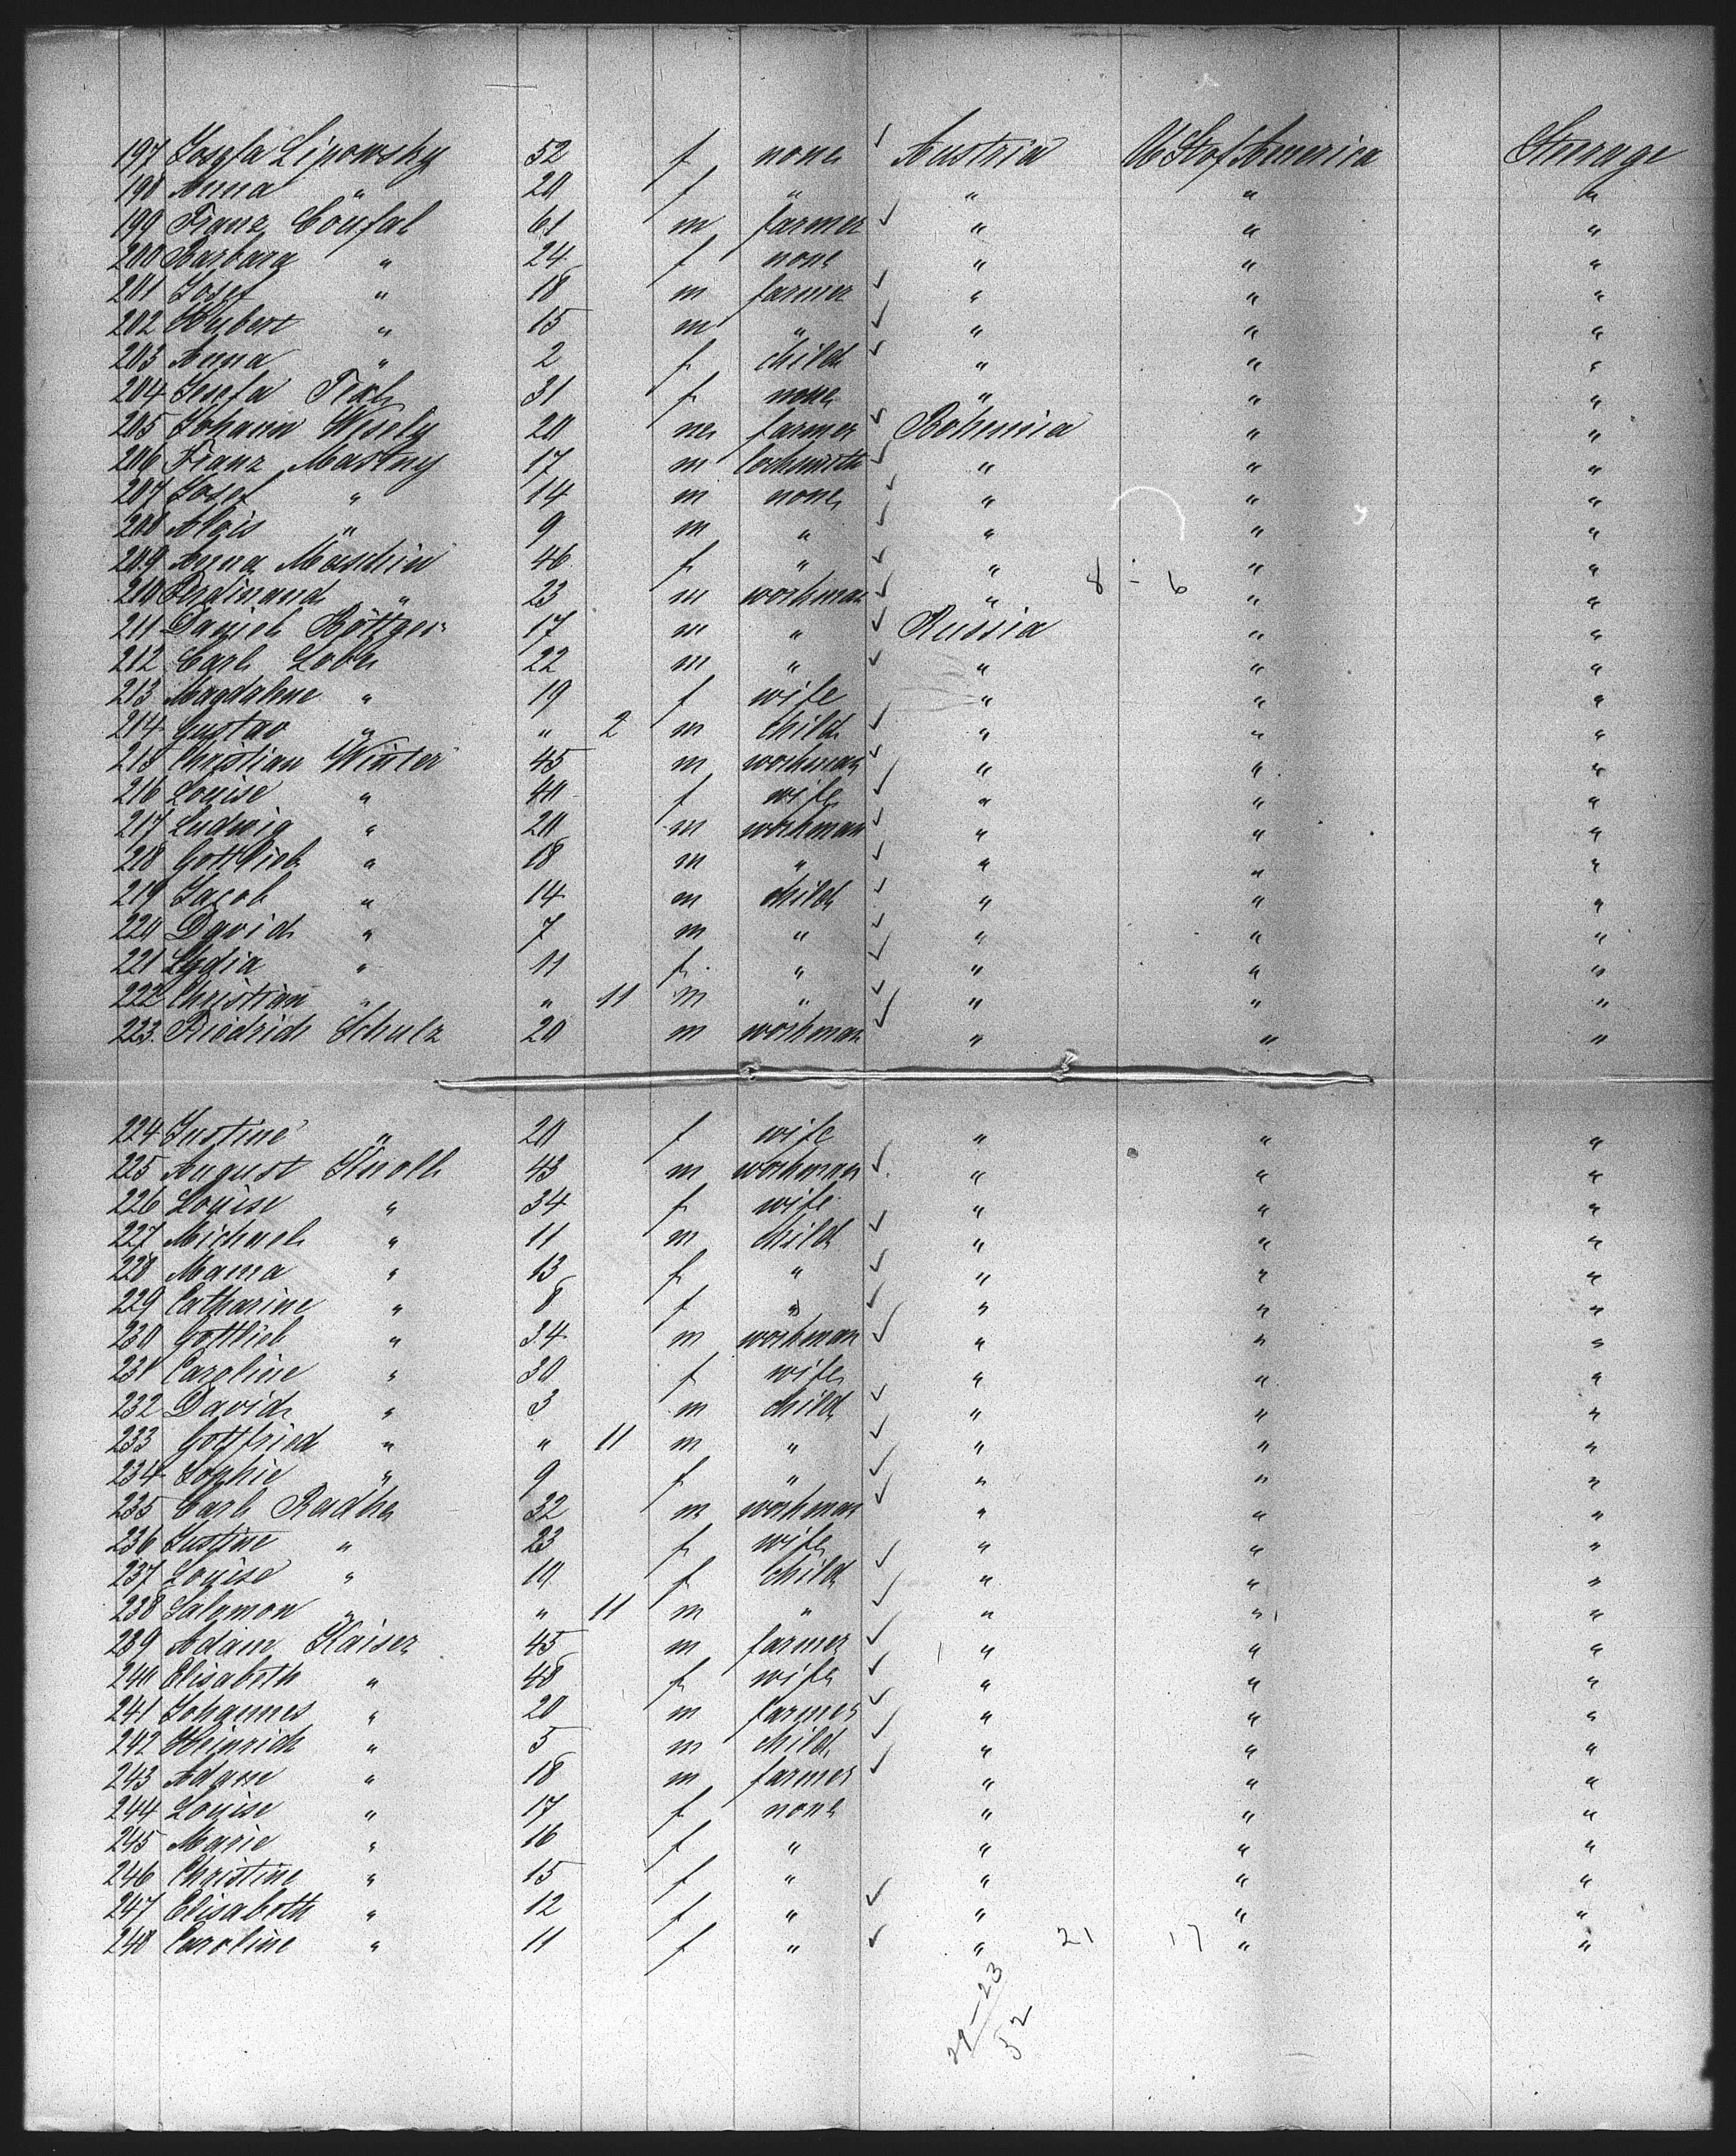 197 Josefa Lipowsky 52 f none ✓ Austria U St of America Steerage
198 Anna " 20 f " " " "
199 Franz Coufal 61 m farmer ✓ " " "
200 Barbara " 24 f none " " "
201 Josef " 18 m farmer ✓ " " "
202 Hubert " 15 m " ✓ " " "
203 Anna " 2 f child ✓ " " "
204 Josefa 31 f none " " "
205 Johann Wesely 20 m farmer ✓ Bohemia " "
206 Franz Mastny 17 m locksmith ✓ " " "
207 Josef " 14 m none ✓ " " "
208 Alois " 9 m " ✓ " " "
209 Anna 46 f " ✓ " " "
210 Ferdinand " 23 m workman ✓ " 8 - 6 " "
211 Daniel Böttger 17 m " ✓ Russia " "
212 Carl 22 m " ✓ " " "
213 Magdalene " 19 f wife " " "
214 Gustav " " 2 m child ✓ " " "
215 Christian Winter 45 m workman ✓ " " "
216 Louise " 40 f wife ✓ " " "
217 Ludwig " 20 m workman ✓ " " "
218 Gottlieb " 18 m " ✓ " " "
219 Jacob " 14 m child ✓ " " "
220 David " 7 m " ✓ " " "
221 Lydia " 11 f " ✓ " " "
222 Christian " " 11 m " ✓ " " "
223. Friedrich Schulz 20 m workman ✓ " " "
224 Justine " 20 f wife " " "
225 August Knoll 43 m workman ✓ " " "
226 Louise " 34 f wife " " "
227 Michael " 11 m child ✓ " " "
228 Maria " 13 f " ✓ " " "
229 Catharine " 8 f " ✓ " " "
230 Gottlieb " 34 m workman ✓ " " "
231 Caroline " 30 f wife " " "
232 David " 3 m child ✓ " " "
233 Gottfried " " 11 m " ✓ " " "
234 Sophie " 9 f " ✓ " " "
235 Carl Radke 32 m workman ✓ " " "
236 Justine " 23 f wife " " "
237 Louise " 10 f child ✓ " " "
238 Salomon " " 11 m " ✓ " " "
239 Adam Kaiser 45 m farmer ✓ " " "
240 Elisabeth " 48 f wife ✓ " " "
241 Johannes " 20 m farmer ✓ " " "
242 Heinrich " 5 m child ✓ " " "
243 Adam " 18 m farmer ✓ " " "
244 Louise " 17 f none " " "
245 Marie " 16 f " " " "
246 Christine " 15 f " " " "
247 Elisabeth " 12 f " ✓ " " "
248 Caroline " 11 f " ✓ " 21 17 " "
29 - 23
52